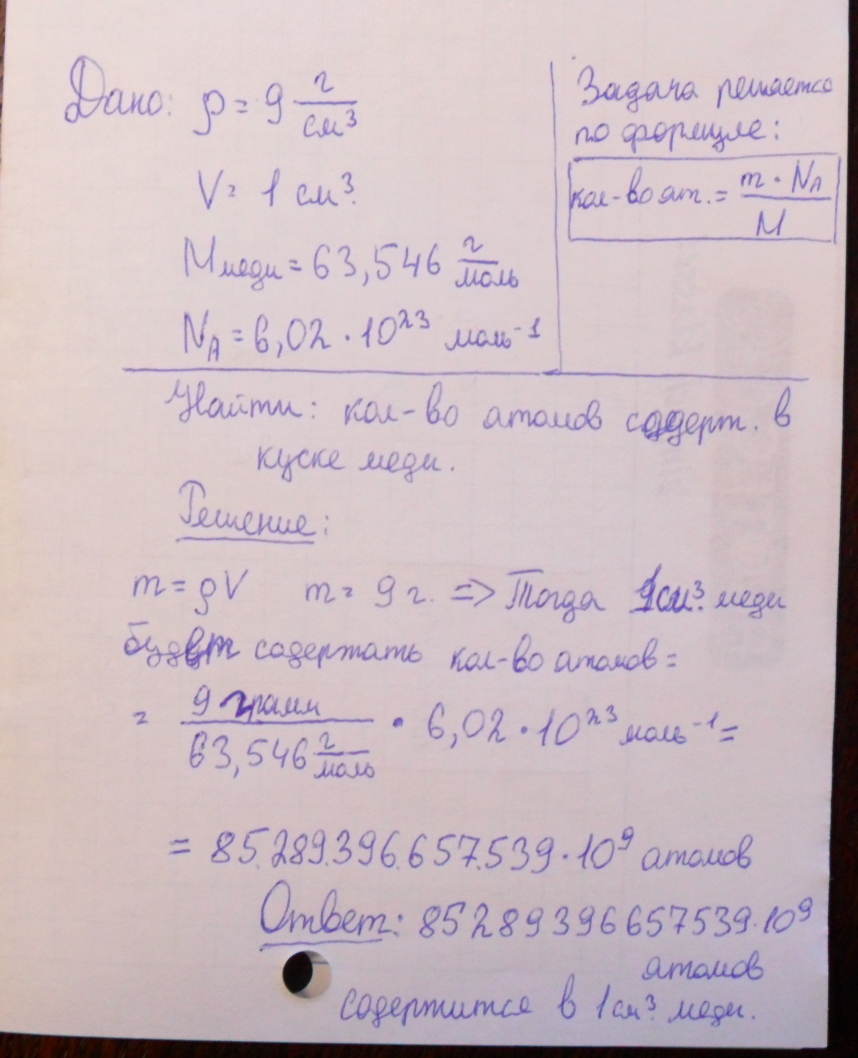 Дано: ρ = 9 г/см³
V = 1 см³.
Mмеди = 63,546 г/моль
N_A = 6,02 · 10²³ моль⁻¹
Задача решается
по формуле:
кол-во ат. = m · N_A / M
Найти: кол-во атомов содерж. в
куске меди.
Решение:
m = ρV m = 9 г. => Тогда 1см³ меди
будет содержать кол-во атомов =
= 9 грамм / 63,546 г/моль · 6,02 · 10²³ моль⁻¹ =
= 85.289.396.657.539 · 10⁹ атомов
Ответ: 85289396657539 · 10⁹
атомов
содержится в 1 см³ меди.